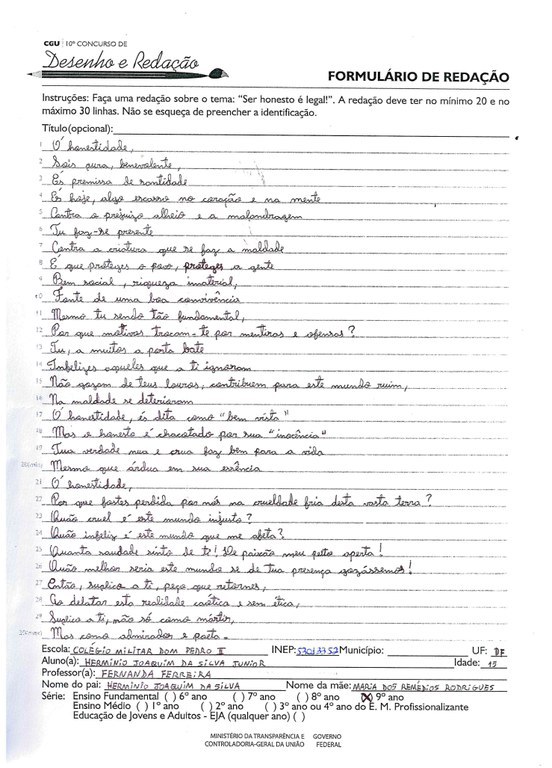 CGU 10º CONCURSO DE
Desenho e Redação
FORMULÁRIO DE REDAÇÃO
Instruções: Faça uma redação sobre o tema: "Ser honesto é legal!". A redação deve ter no mínimo 20 e no
máximo 30 linhas. Não se esqueça de preencher a identificação.
Título(opcional):
1 Ó honestidade,
2 Sois pura, benevalente,
3 És premissa de santidade
4 És hoje, algo escasso no coração e na mente
5 Contra o prejuízo alheio e a malandragem
6 Tu faz-se presente
7 Contra a criatura que se faz a maldade
8 É que proteges o povo, proteges a gente
9 Bem social, riqueza imaterial,
10 Fonte de uma boa convivência
11 Mesmo tu sendo tão fundamental,
12 Por que motivos trocam-te por mentiras e ofensas?
13 Tu, a muitos a porta bate
14 Infelizes aqueles que a ti ignoram
15 Não gozam de teus louros, contribuem para este mundo ruim,
16 Na maldade se deterioram
17 Ó honestidade, és dita como "bem vista"
18 Mas o honesto é chacotado por sua "inocência"
19 Tua verdade nua e crua faz bem para a vida
20 Mesmo que árdua em sua essência
21 Ó honestidade,
22 Por que fostes perdida por nós na crueldade fria desta vasta terra?
23 Quão cruel é este mundo injusto?
24 Quão infeliz é este mundo que me afeta?
25 Quanta saudade sinto de ti! De paixão meu peito aperta!
26 Quão melhor seria este mundo se de tua presença gozássemos!
27 Então, suplico a ti, peço que retornes,
28 Ao delatar esta realidade caótica e sem ética,
29 Suplico a ti, não só como mártir,
Mas como admirador e poeta.
Escola: COLÉGIO MILITAR DOM PEDRO II INEP: 53013352 Município: UF: DF
Aluno(a): HERMINIO JOAQUIM DA SILVA JUNIOR Idade: 15
Professor(a): FERNANDA FERREIRA
Nome do pai: HERMINIO JOAQUIM DA SILVA Nome da mãe: MARIA DOS REMÉDIOS RODRIGUES
Série: Ensino Fundamental ( ) 6º ano ( ) 7º ano ( ) 8º ano (X) 9º ano
Ensino Médio ( ) 1º ano ( ) 2º ano ( ) 3º ano ou 4º ano do E. M. Profissionalizante
Educação de Jovens e Adultos - EJA (qualquer ano) ( )
MINISTÉRIO DA TRANSPARÊNCIA E GOVERNO
CONTROLADORIA-GERAL DA UNIÃO FEDERAL